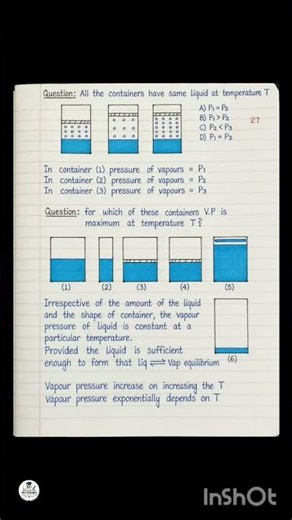 Question: All the containers have same liquid at temperature T
A) P₁ = P₂
B) P₁ > P₂
C) P₂ < P₃
D) P₁ = P₃
27
In container (1) pressure of vapours = P₁
In container (2) pressure of vapours = P₂
In container (3) pressure of vapours = P₃
Question: for which of these containers V.P is
maximum at temperature T?
(1) (2) (3) (4) (5)
Irrespective of the amount of the liquid
and the shape of container, the vapour
pressure of liquid is constant at a
particular temperature.
Provided the liquid is sufficient
enough to form that Liq ⇌ Vap equilibrium
(6)
Vapour pressure increase on increasing the T
Vapour pressure exponentially depends on T
InShOt